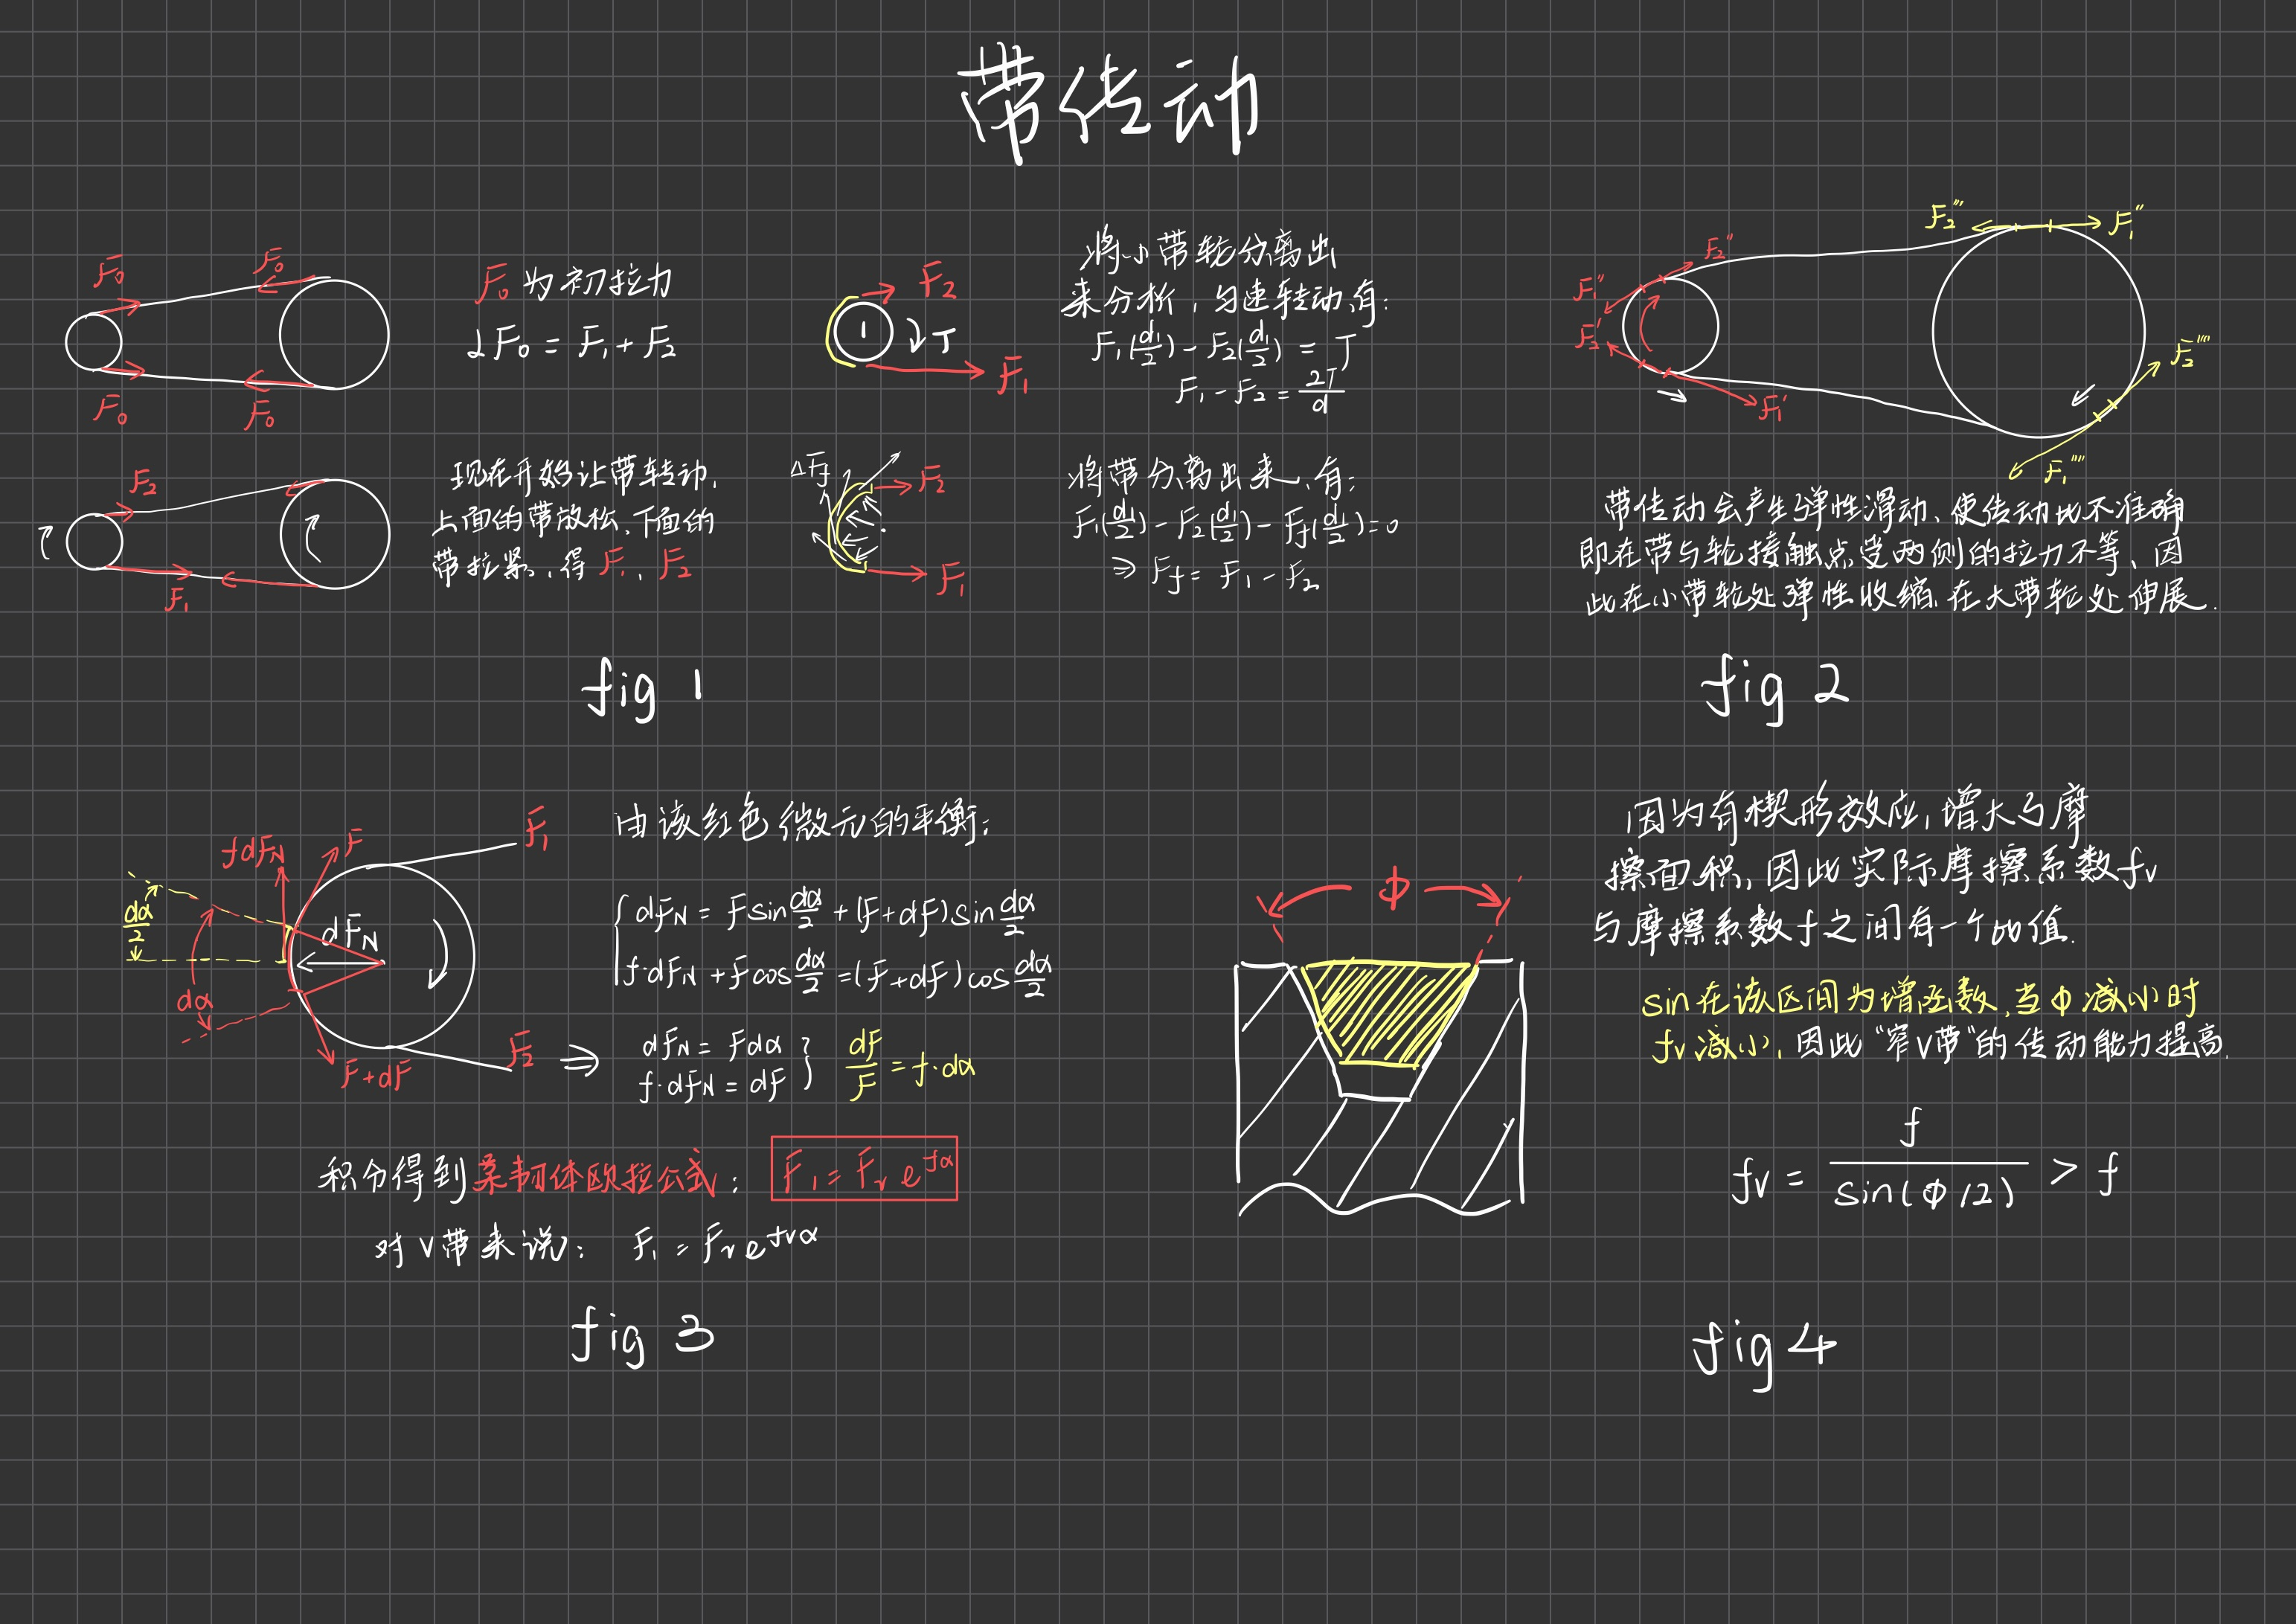 带传动
F₀
F₀
F₀
F₀
F₀ 为初拉力
2F₀ = F₁ + F₂
F₂
1
T
F₁
将小带轮分离出
来分析，匀速转动,有:
F₁(d₁/2) - F₂(d₁/2) = T
F₁ - F₂ = 2T/d
F₂
F₁
现在开始让带转动,
上面的带放松,下面的
带拉紧,得 F₁、F₂
ΔFf
F₂
F₁
将带分离出来,有:
F₁(d₁/2) - F₂(d₁/2) - Ff(d₁/2) = 0
⇒ Ff = F₁ - F₂
fig 1
F₂''
F₁''
F₂'
F₁'
F₂'''
F₁'''
F₂''''
F₁''''
带传动会产生弹性滑动、使传动比不准确
即在带与轮接触点受两侧的拉力不等、因
此在小带轮处弹性收缩,在大带轮处伸展.
fig 2
fdF_N
F
F₁
dα/2
dF_N
dα
F+dF
F₂
由该红色微元的平衡:
dF_N = F sin dα/2 + (F+dF) sin dα/2
f·dF_N + F cos dα/2 = (F+dF) cos dα/2
⇒ dF_N = Fdα
f·dF_N = dF
dF/F = f·dα
积分得到柔韧体欧拉公式: F₁ = F₂ e^{fα}
对V带来说: F₁ = F₂ e^{fvα}
fig 3
Φ
因为有楔形效应,增大与摩
擦面积、因此实际摩擦系数fv
与摩擦系数f之间有一个比值.
sin在该区间为增函数,当Φ减小时
fv减小,因此"窄V带"的传动能力提高.
fv = f / sin(Φ/2) > f
fig 4